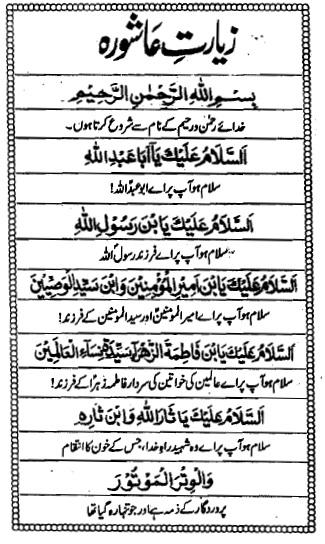 زیارتِ عاشورہ
بِسْمِ اللهِ الرَّحْمٰنِ الرَّحِيْمِ
خدائے رحمٰن ورحیم کے نام سے شروع کرتا ہوں۔
اَلسَّلَامُ عَلَيْكَ يَا اَبَا عَبْدِ اللهِ
سلام ہو آپ پر اے ابو عبدؑ اللہ!
اَلسَّلَامُ عَلَيْكَ يَا بْنَ رَسُوْلِ اللهِ
سلام ہو آپ پر اے فرزند رسولؐ اللہ
اَلسَّلَامُ عَلَيْكَ يَا بْنَ اَمِيْرِ الْمُؤْمِنِيْنَ وَ ابْنَ سَيِّدِ الْوَصِيِّيْنَ
سلام ہو آپ پر اے امیر المومنینؑ اور سید المومنین کے فرزند!
اَلسَّلَامُ عَلَيْكَ يَا بْنَ فَاطِمَةَ الزَّهْرَآءِ سَيِّدَةِ نِسَآءِ الْعَالَمِيْنَ
سلام ہو آپ پر اے عالمین کی خواتین کی سردار فاطمہ زہراؑ کے فرزند!
اَلسَّلَامُ عَلَيْكَ يَا ثَارَ اللهِ وَ ابْنَ ثَارِهِ
سلام ہو آپ پر اے وہ شہید راہِ خدا، جس کے خون کا انتقام
وَ الْوِتْرَ الْمَوْتُوْرَ
پروردگار کے ذمہ ہے اور جو تنہا رہ گیا تھا